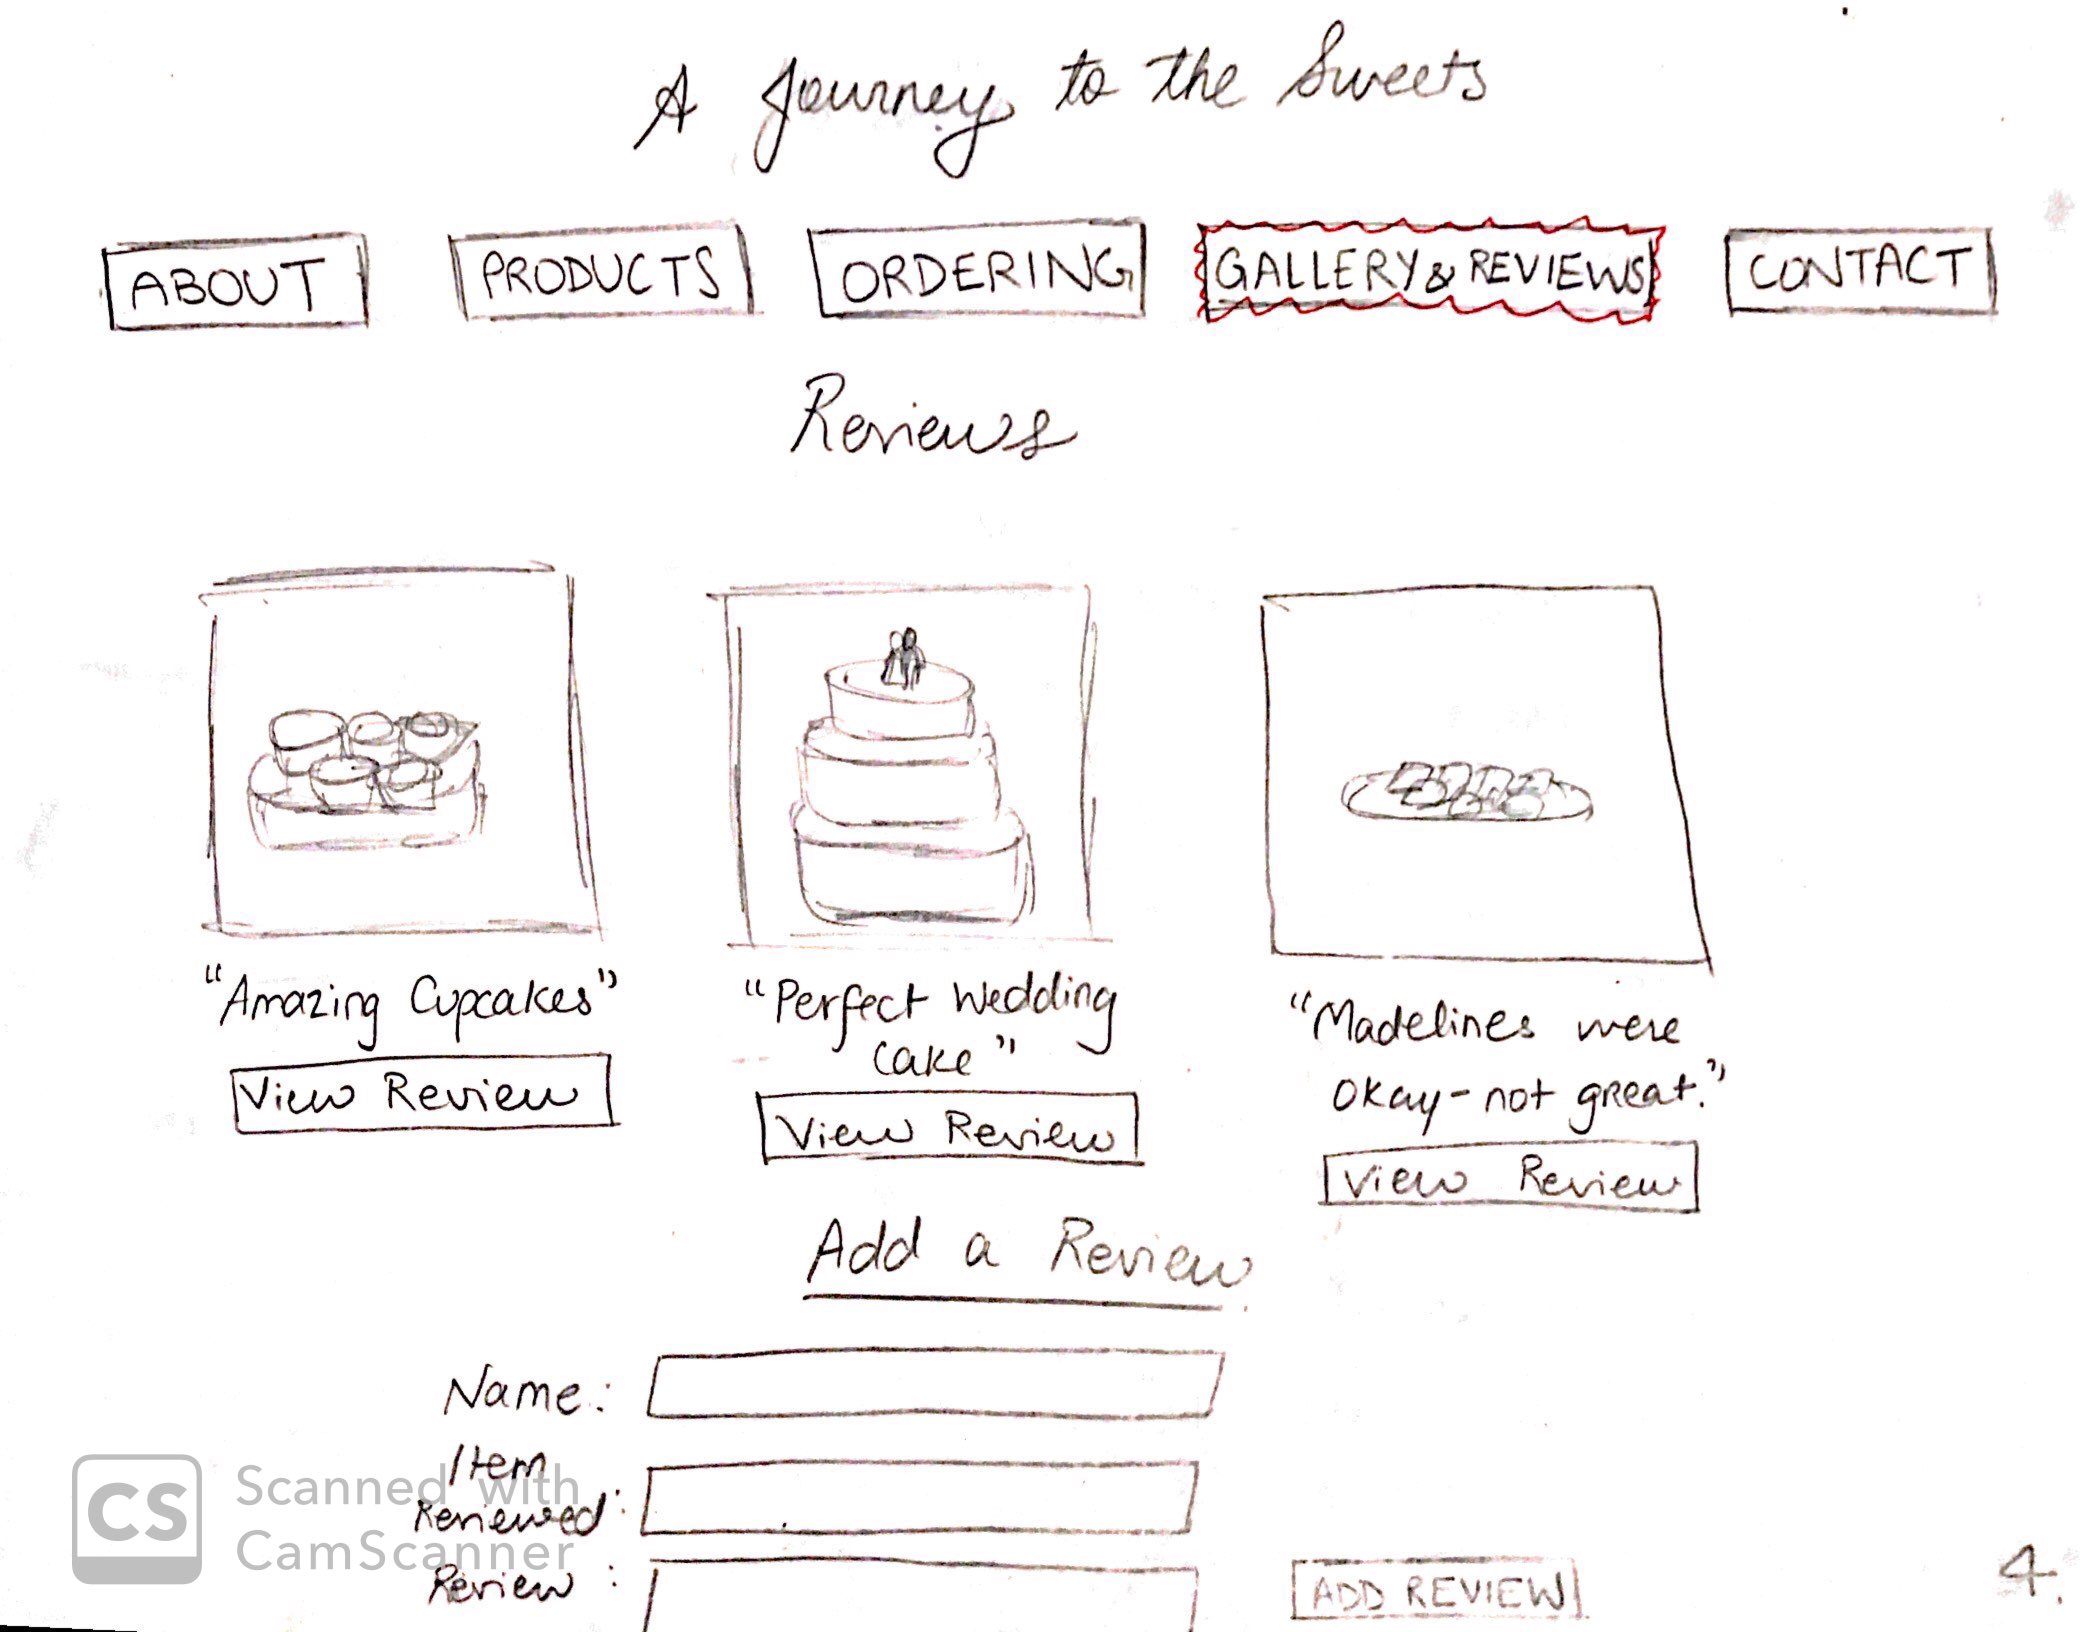 A Journey to the Sweets
ABOUT PRODUCTS ORDERING GALLERY & REVIEWS CONTACT
Reviews
"Amazing Cupcakes"
View Review
"Perfect Wedding
Cake"
View Review
"Madelines were
okay - not great."
View Review
Add a Review
Name:
Item
Reviewed:
Review:
ADD REVIEW
4.
CS Scanned with
CamScanner